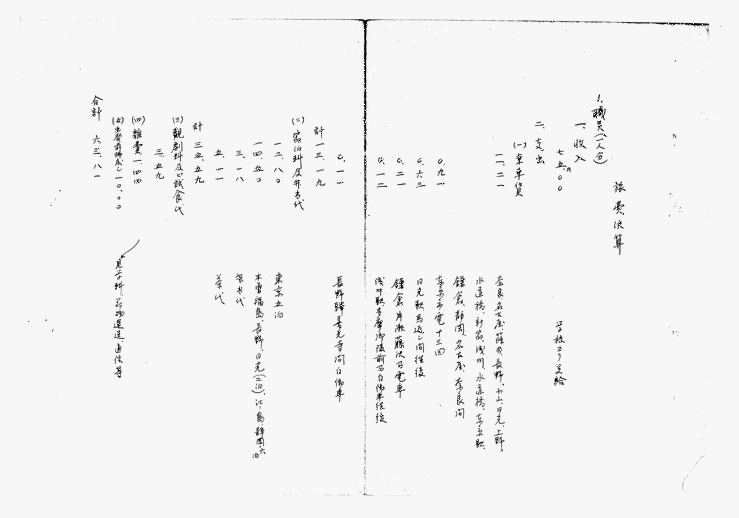 旅費決算
1、職員(一人分)
一、収入
七五、〇〇 学校ヨリ支給
二、支出
(一)乗車賃
一一、二一 奈良、名古屋、篠ノ井、長野、小山、日光、上野、
水道橋、新宿、浅川、水道橋、東京駅、
鎌倉、静岡、名古屋、奈良間
〇、九一 東京市電十三回
〇、六三 日光駅馬返シ間往復
〇、二一 鎌倉片瀬藤沢間電車
〇、一二 浅川駅多摩御陵前間自働車往復
〇、一一 長野駅善光寺間自働車
計 一三、一九
(二)宿泊料及弁当代
一二、八〇 東京五泊
一四、五〇 木曽福島、長野、日光(二泊)、江ノ島、静岡六泊
三、一八 弁当代
五、一一 茶代
計 三五、五九
(三)観劇料及試食代
三、五九
(四)雑費 一、四四
(五)出発前準備 一〇、〇〇 見学料、荷物運送、通信等
合計 六三、八一